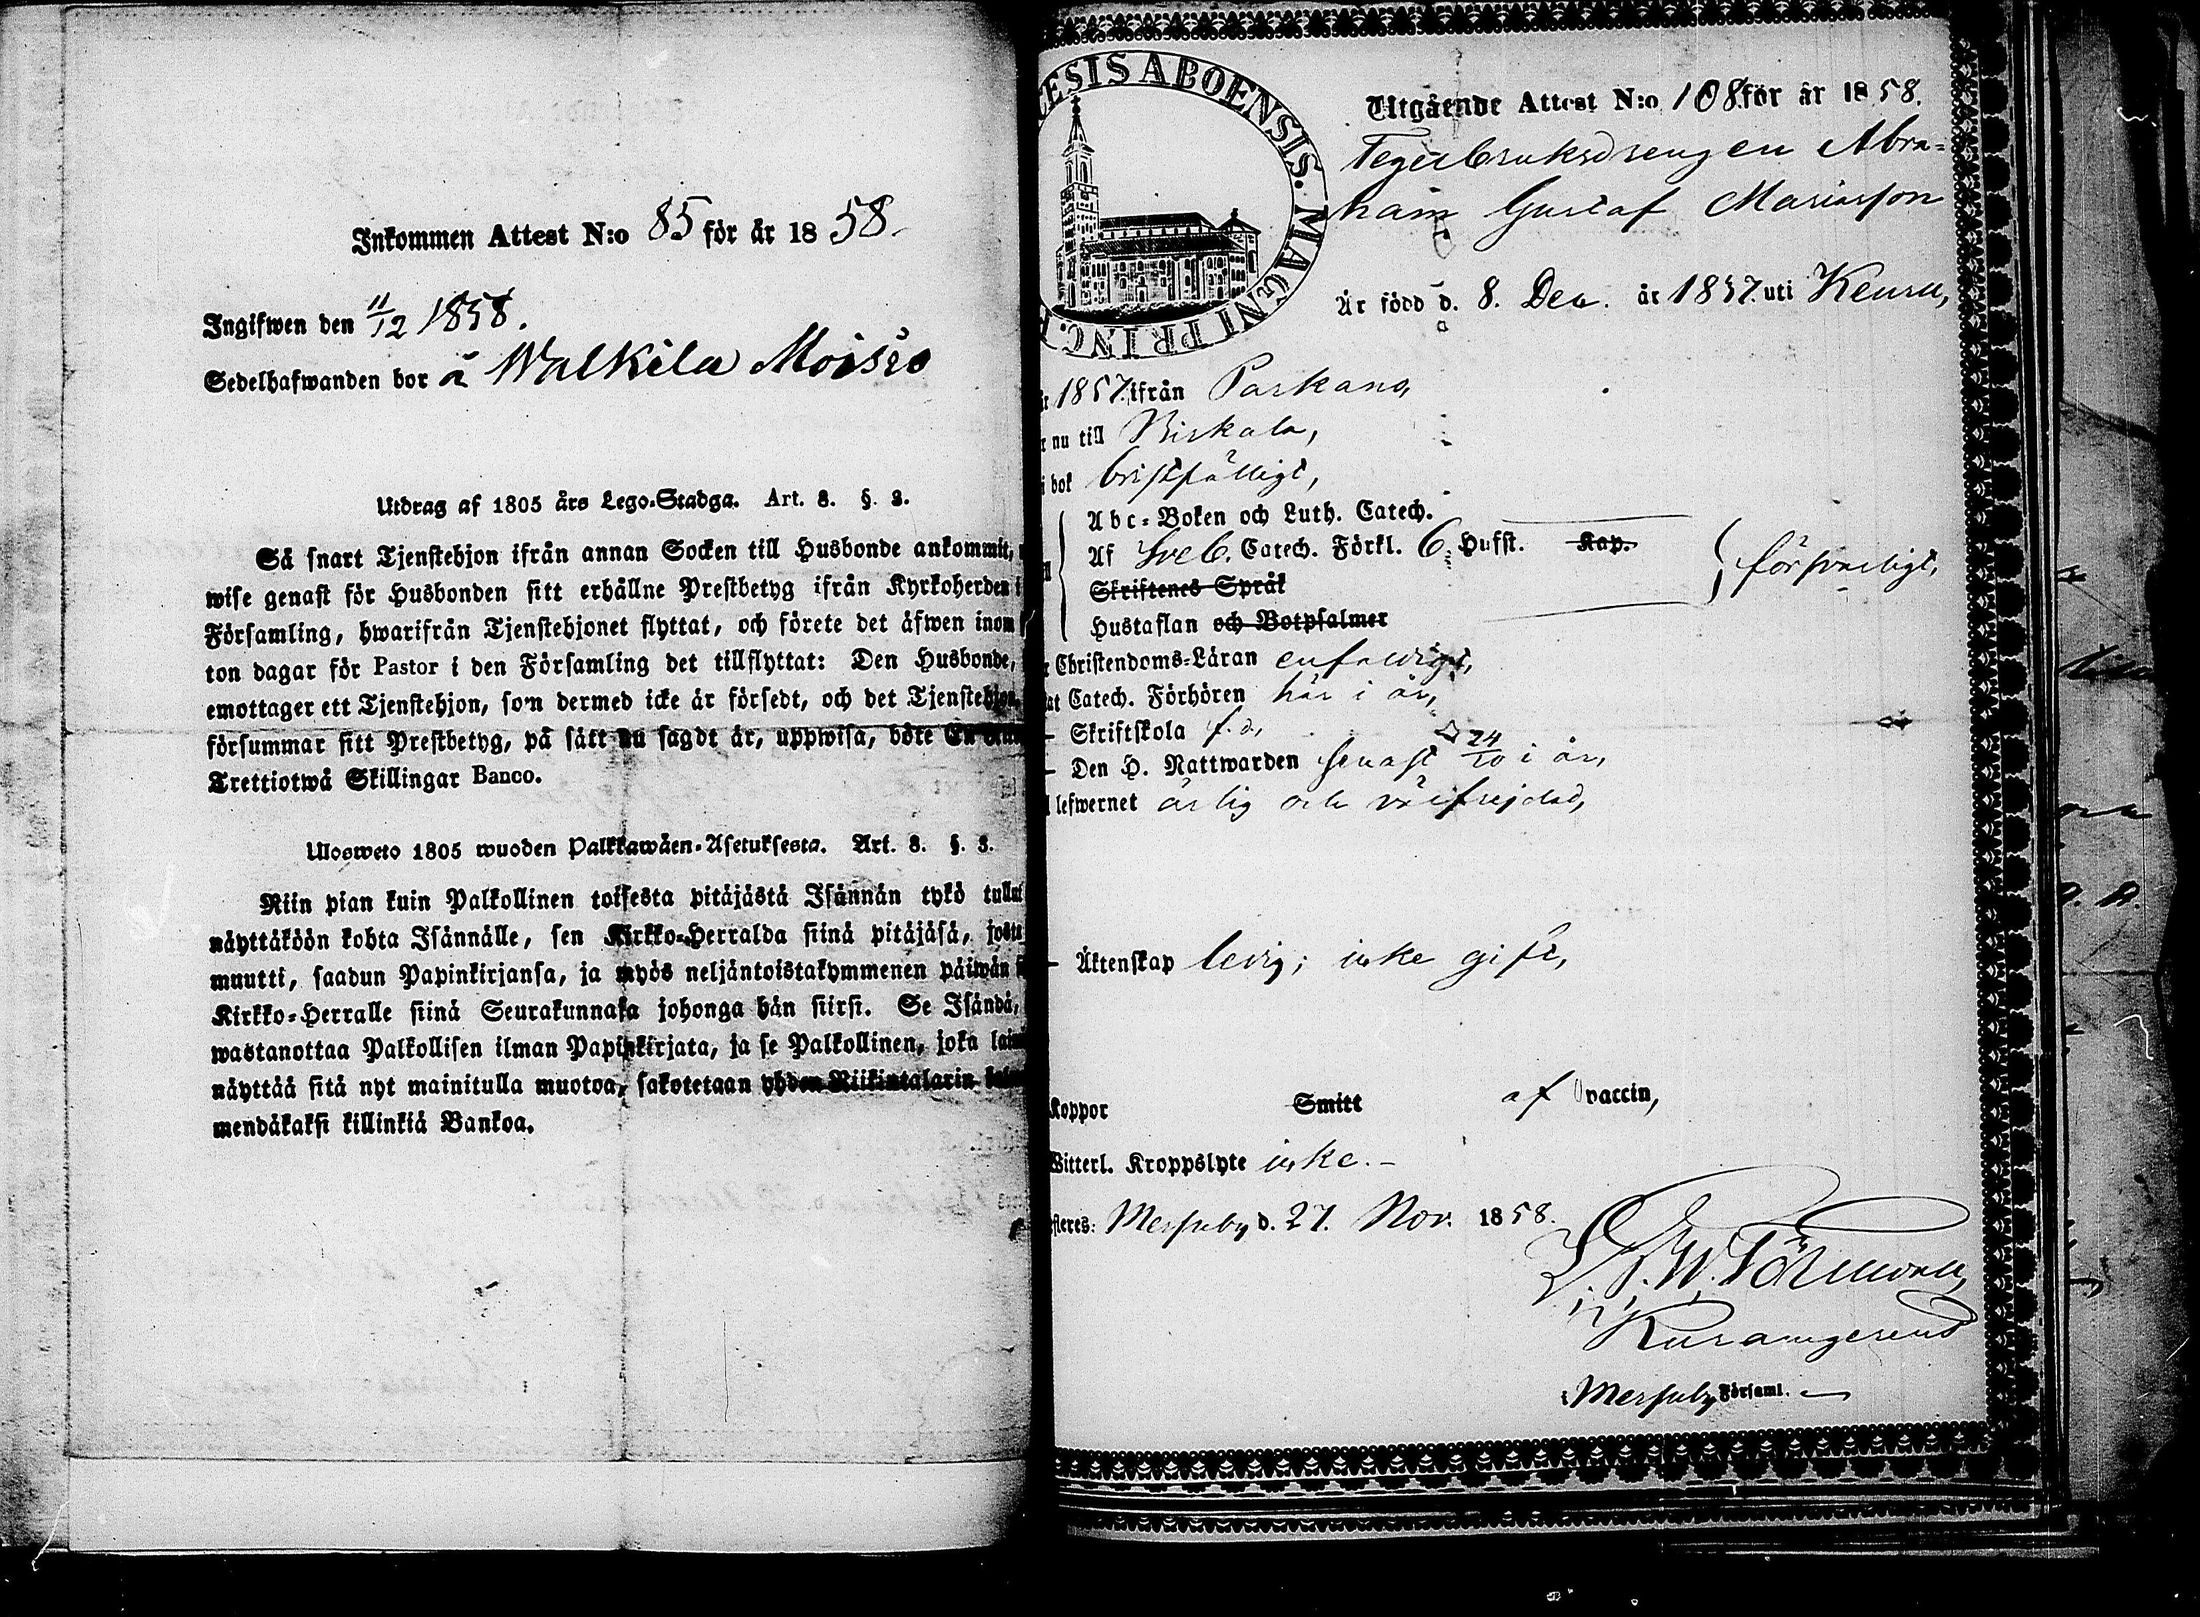 Inkommen Attest N:o 85 för år 1858.
Ingifwen den 11/12 1858.
Sedelhafwanden bor å Walkila Moisio
Utdrag af 1805 års Lego-Stadga. Art. 8. §. 3.
Så snart Tjenstehjon ifrån annan Socken till Husbonde ankommit,
wise genast för Husbonden sitt erhållne Prestbetyg ifrån Kyrkoherden i
Församling, hwarifrån Tjenstehjonet flyttat, och förete det äfwen inom
ton dagar för Pastor i den Församling det tillflyttat: Den Husbonde,
emottager ett Tjenstehjon, som dermed icke är försedt, och det Tjenstehjon,
försummar sitt Prestbetyg, på sätt nu sagdt är, uppwisa, böte En
Trettiotwå Skillingar Banco.
Ulosweto 1805 wuoden Palkkawäen-Asetuksesta. Art. 8. §. 3.
Niin pian kuin Palkollinen toisesta pitäjästä Isännän tykö tullut
näyttäköön kohta Isännälle, sen Kirkko-Herralda siinä pitäjäsä, josta
muutti, saadun Papinkirjansa, ja myös neljäntoistakymmenen päiwän
Kirkko-Herralle siinä Seurakunnasa johonga hän siirsi. Se Isändä,
wastanottaa Palkollisen ilman Papinkirjata, ja se Palkollinen, joka
näyttää sitä nyt mainitulla muotoa, sakotetaan yhden Riikintalarin
mendäkaksi killinkiä Bankoa.
ESIS ABOENSIS. MAGNI PRINC.
Utgående Attest N:o 108 för år 1858.
Tegelbruksdrengen Abra=
ham Gustaf Mariasson
Är född d. 8. Dec. år 1837. uti Keuru,
1857. ifrån Parkano,
nu till Birkala,
i bok bristfälligt,
Abc-Boken och Luth. Catech.
Af Sveb. Catech. Förkl. 6 Hufst. Kap.
försvarligt,
Skriftenes Språk
Hustaflan och Botpsalmer
Christendoms-Läran enfaldigt,
Catech. Förhören här i år,
— Skriftskola f. d.,
— Den H. Nattwarden senast 24/10 i år,
lefwernet ärlig och välfrejdad,
— Äktenskap ledig; icke gift,
Koppor Smitt af vaccin,
Witterl. Kroppslyte icke. –
Messuby d. 27. Nov. 1858.
Messuby Församl. —